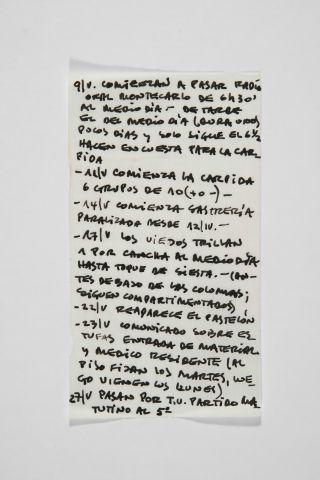 9/V. COMIENZAN A PASAR RADIO
ORAL MONTECARLO DE 6H30'
AL MEDIO DIA - DE TARDE
EL DEL MEDIO DIA (DURA
POCOS DIAS y SOLO SIGUE EL 6½
HACEN ENCUESTA PARA LA CAR
PIDA
- 11/V COMIENZA LA CARPIDA
6 GRUPOS DE 10 (+ o -) -
- 14/V COMIENZA SASTRERIA
PARALIZADA DESDE 12/IV. -
- 17/V LOS VIEJOS TRILLAN
1 POR CANCHA AL MEDIO DIA
HASTA TOQUE DE SIESTA. - (AN-
TES DEBAJO DE LAS COLUMNAS;
SIGUEN COMPARTIMENTADOS)
- 22/V REAPARECE EL PASTELON
- 23/V COMUNICADO SOBRE ES
TUFAS ENTRADA DE MATERIAL
y MEDICO RESIDENTE (AL
PISO FIJAN LOS MARTES, LUE
GO VIENEN LOS LUNES)
27/V PASAN POR T.V. PARTIDO MA
TUTINO AL 5º